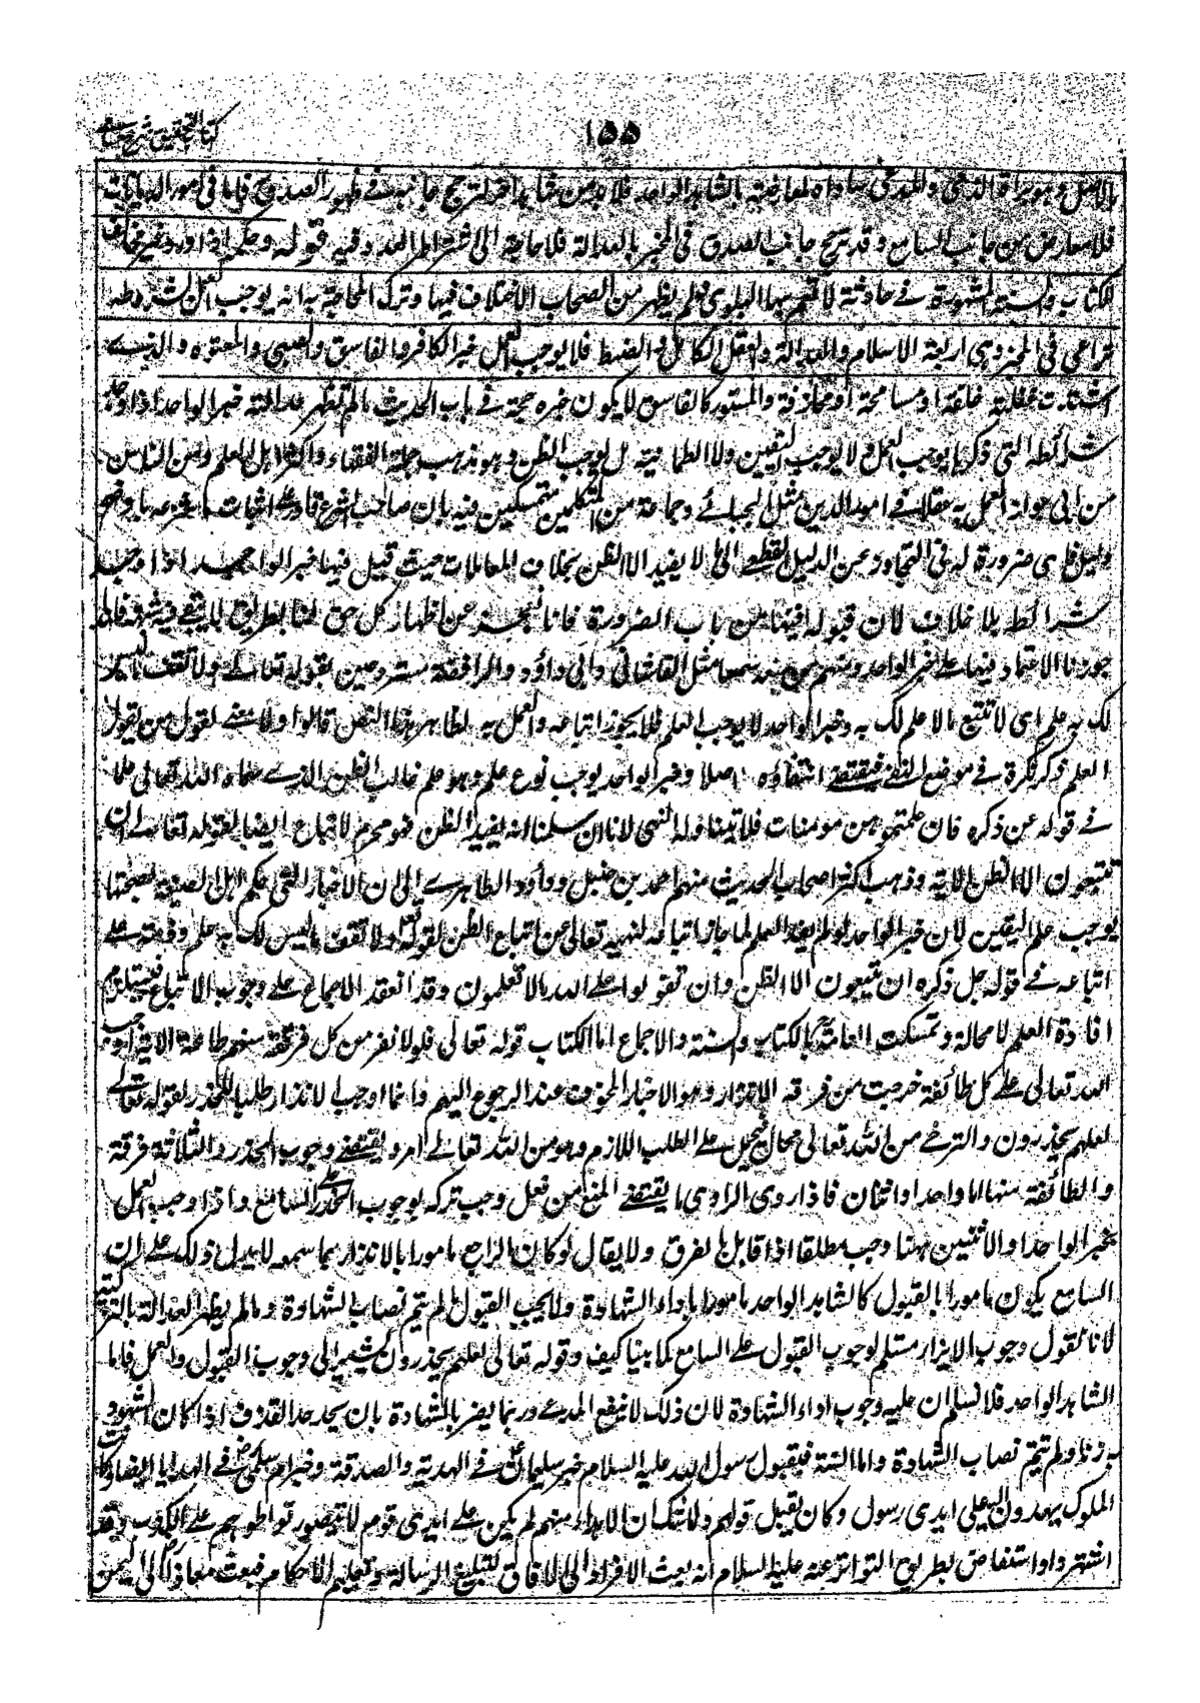 ١٥٥
كتاب التحقيق شرح حسامى
بالاصل وهو براءة الذمة فلا بد من شاهد آخر لترجح جانبه فى ظهور الصدق فاما فى امور الديانات
فلا معارض من جانب السامع وقد ترجح جانب الصدق فى المخبر بالعدالة فلا حاجة الى اشتراط العدد فيه قوله وحكمه اذا ورد غير مخالف
للكتاب والسنة المشهورة فے حادثة لا تعم بها البلوى ولم يظهر من الصحابة الاختلاف فيها وترك المحاجة به انه يوجب العمل بشروط
تراعى فى المخبر وهى اربعة الاسلام والعدالة والعقل الكامل والضبط فلا يوجب العمل خبر الكافر والفاسق والصبى والمعتوه والذے
اشتدت غفلته خلقة او مسامحة او مجازفة والمستور كالفاسق لا يكون خبره حجة فے باب الحديث مالم تظهر عدالته خبر الواحد اذا وجد
شرائطه التى ذكرنا يوجب العمل ولا يوجب اليقين ولا الطمانينة بل يوجب الظن وهو مذهب جملة الفقهاء واكثر اهل العلم ومن الناس من
من ابى جواز العمل به عقلا فے امور الدين مثل الجبائے وجماعة من المتكلمين متمسكين فيه بان صاحب الشرع قادر على اثبات ما شرعه باوضح
دليل فاى ضرورة له فى التجاوز عن الدليل القطعے الى ما لا يفيد الا الظن بخلاف المعاملات حيث قبل فيها خبر الواحد اذا وجد
شرائطه بلا خلاف لان قبوله فيها من باب الضرورة فانا نعجز عن اظهار كل حق لنا بطريق لا يبقى فيه شبهة فلهذا
جوزنا الاعتماد فيها على خبر الواحد ومنهم من منعه سمعا مثل القاشانى وابى داؤد والرافضة مستروحين بقوله تعالے ولا تقف ما ليس
لك به علم اى لا تتبع ما لا علم لك به وخبر الواحد لا يوجب العلم فلا يجوز اتباعه والعمل به لظاهر هذا النص قالوا ولا معنے لقول من يقول
العلم ذكر نكرة فے موضع النفے فيقتضے انتفاؤه اصلا وخبر الواحد يوجب نوع علم وهو علم غالب الظن الذے سماه الله تعالى علما
فے قوله عز ذكره فان علمتموهن مومنات فلا يتناوله النهى لانا ان سلمنا انه يفيد الظن فهو محرم الاتباع ايضا لقوله تعالے ان
تتبعون الا الظن الاية وذهب اكثر اصحاب الحديث منهم احمد بن حنبل وداؤد الظاهرے الى ان الاخبار التى حكم اهل الصنعة بصحتها
يوجب علم اليقين لان خبر الواحد لو لم يفد العلم لما جاز اتباعه لنهيه تعالى عن اتباع الظن بقوله ولا تقف ما ليس لك به علم وذمه على
اتباعه فے قوله جل ذكره ان تتبعون الا الظن وان تقولوا على الله مالا تعلمون وقد انعقد الاجماع على وجوب الاتباع فيستلزم
افادة العلم لا محالة وتمسكت العامة بالكتاب والسنة والاجماع اما الكتاب قوله تعالى فلولا نفر من كل فرقة منهم طائفة الاية اوجب
الله تعالى على كل طائفة خرجت من فرقة الانذار وهو الاخبار المخوف عند الرجوع اليهم وانما اوجب الانذار طلبا للحذر لقوله تعالى
لعلهم يحذرون والترجے من الله تعالى محال فيحمل على الطلب اللازم وهو من الله تعالے امر ويقتضے وجوب الحذر والثلاثة فرقة
والطائفة منها اما واحد او اثنان فاذا روى الراوى ما يقتضے المنع من فعل وجب تركه لوجوب الحذر على السامع واذا وجب العمل
بخبر الواحد او الاثنين ههنا وجب مطلقا اذ لا قائل بالفرق ولا يقال لو كان الراجع مامورا بالانذار بما سمعه لا يدل ذلك على ان
السامع يكون مامورا بالقبول كالشاهد الواحد مامور باداء الشهادة ولا يجب القبول مالم يتم نصاب الشهادة ومالم يظهر العدالة بالتزكية
لانا نقول وجوب الانذار مستلزم لوجوب القبول على السامع كما بينا كيف وقوله تعالى لعلهم يحذرون يشير الى وجوب القبول والعمل فاما
الشاهد الواحد فلا نسلم ان عليه وجوب اداء الشهادة لان ذلك لا ينفع المدعى وربما يضر بالشهادة بان يحد حد القذف اذا كان المشهود
به زنا ولم يتم نصاب الشهادة واما السنة فبقبول رسول الله عليه السلام خبر سلمان فے الهدية والصدقة وخبر ام سلمى فے الهدايا ايضا وكانت
الملوك يهدون اليه على ايدى رسول وكان يقبل قولهم ولا شك ان الاهداء منهم لم يكن على ايدى قوم لا يتصور تواطوهم على الكذب وقد
اشتهر واستفاض بطريق التواتر عنه عليه السلام انه بعث الافراد الى الافاق لتبليغ الرسالة وتعليم الاحكام فبعث معاذا الى اليمن